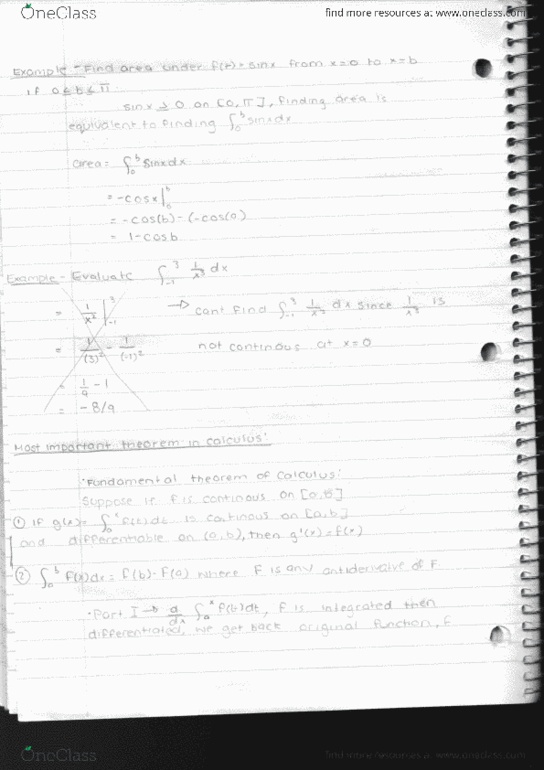 OneClass
find more resources at www.oneclass.com
Example - Find area under f(x) = sinx from x=0 to x=b
if 0≤b≤π
sinx ≥ 0 on [0,π], finding area is
equivalent to finding ∫₀ᵇ sinxdx
area = ∫₀ᵇ sinxdx
= -cosx|₀ᵇ
= -cos(b) - (-cos(0)
= 1-cosb
Example - Evaluate ∫₋₁³ 1/x³ dx
= 1/x² |₋₁³
→ cant find ∫₋₁³ 1/x³ dx since 1/x³ is
= 1/(3)² - 1/(-1)²
not continous at x=0
= 1/9 - 1
= -8/9
Most important theorem in calculus:
•Fundamental theorem of calculus:
Suppose if f is continous on [a,b]
① If g(x) = ∫ₐˣ f(t)dt is continous on [a,b]
and differentiable on (a,b), then g'(x) = f(x)
② ∫ₐᵇ f(x)dx = F(b)-F(a) where F is any antiderivative of F
•Part I → d/dx ∫ₐˣ f(t)dt, F is integrated then
differentiated, we get back original function, f
OneClass
find more resources at www.oneclass.com